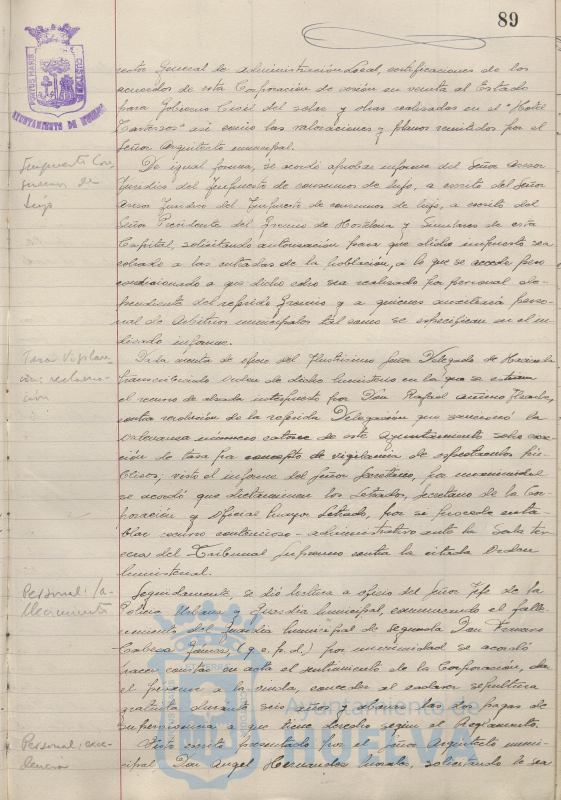 89
PORTUS MARIS CUSTODIA
AYUNTAMIENTO DE HUELVA
rector General de Administración Local, certificaciones de los
acuerdos de esta Corporación de cesión en venta al Estado
para Gobierno Civil del solar y obras realizadas en el "Hotel
Tartessos" así como las valoraciones y planos remitidos por el
Señor Arquitecto municipal.
Impuesto Con-
sumos de
lujo
De igual forma, se acordó aprobar informe del Señor Asesor
Jurídico del Impuesto de consumos de lujo, a escrito del Señor
Asesor Jurídico del Impuesto de consumos de lujo, a escrito del
Señor Presidente del Gremio de Hostelería y Similares de esta
Capital, solicitando autorización para que dicho impuesto sea
cobrado a las entradas de la población, a lo que se accede pero
condicionado a que dicho cobro sea realizado por personal de-
pendiente del referido Gremio y a quienes auxiliaría perso-
nal de Arbitrios municipales tal como se especifica en el in-
dicado informe.
Tasa Vigilan-
cia: reclama-
ción
Dada cuenta de oficio del Ilustrísimo Señor Delegado de Hacienda
transcribiendo Orden de dicho Ministerio en la que se estima
el recurso de alzada interpuesto por Don Rafael
contra resolución de la referida Delegación que sancionó la
Ordenanza número catorce de este Ayuntamiento sobre exac-
ción de tasa por concepto de vigilancia de espectáculos pú-
blicos; visto el informe del Señor Secretario, por unanimidad
se acordó que dictaminen los Letrados, Secretario de la Cor-
poración y Oficial Mayor Letrado, por si procede enta-
blar recurso contencioso-administrativo ante la Sala ter-
cera del Tribunal Supremo contra la citada Orden
ministerial.
Personal: fa-
llecimiento
Seguidamente, se dió lectura a oficio del Señor Jefe de la
Policía Urbana y Guardia Municipal, comunicando el falle-
cimiento del Guardia Municipal de segunda Don
Cabeza (q. e. p. d.) por unanimidad se acordó
hacer constar en acta el sentimiento de la Corporación, dar
el pésame a la viuda, conceder al cadáver sepultura
gratuita durante seis años y abonar las dos pagas de
supervivencia a que tiene derecho según el Reglamento.
Personal: exce-
dencia
Visto escrito presentado por el Señor Arquitecto muni-
cipal Don Angel Hernández Morales, solicitando le sea
Ayuntamiento de
HUELVA